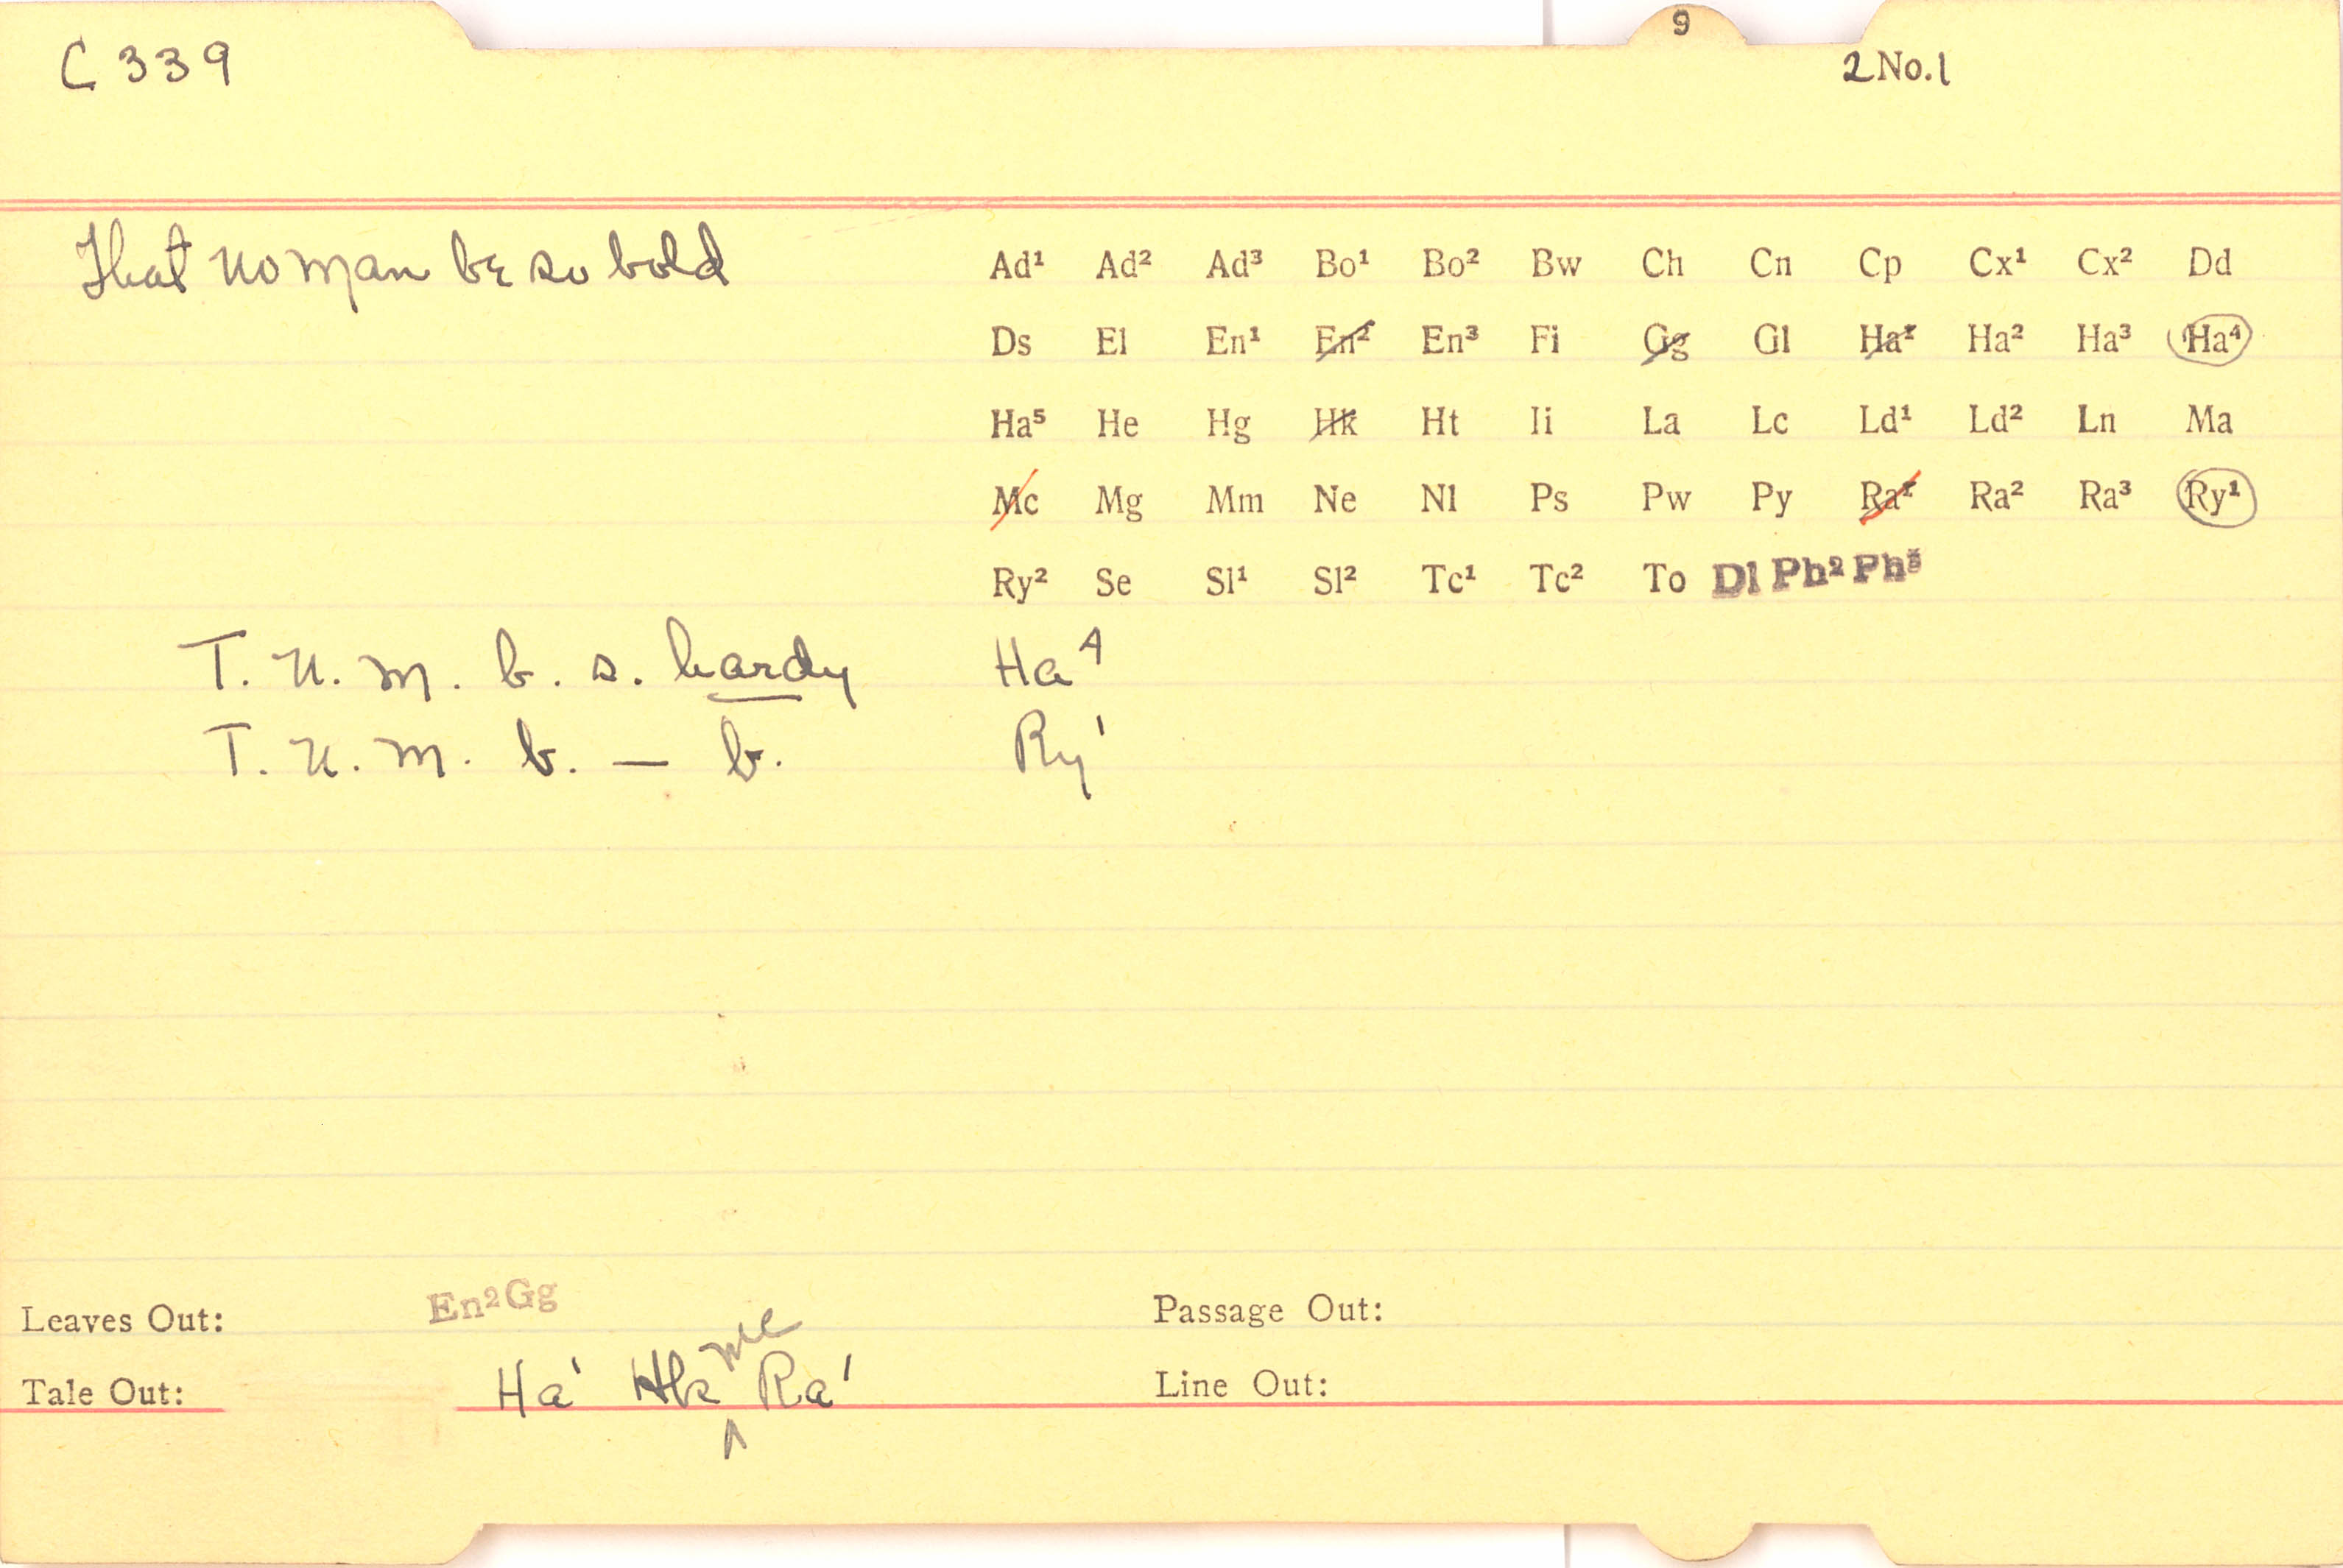 9
C 339 2 No. 1
That no man be so bold
Ad¹ Ad² Ad³ Bo¹ Bo² Bw Ch Cn Cp Cx¹ Cx² Dd
Ds El En¹ En² En³ Fi Gg Gl Ha¹ Ha² Ha³ Ha⁴
Ha⁵ He Hg Hk Ht Ii La Lc Ld¹ Ld² Ln Ma
Mc Mg Mm Ne Nl Ps Pw Py Ra¹ Ra² Ra³ Ry¹
Ry² Se Sl¹ Sl² Tc¹ Tc² To Dl Ph² Ph³
T. n. m. b. s. hardy Ha⁴
T. n. m. b. — b. Ry¹
Leaves Out: En² Gg Passage Out:
Tale Out: Ha¹ Hk Mc Ra¹ Line Out: